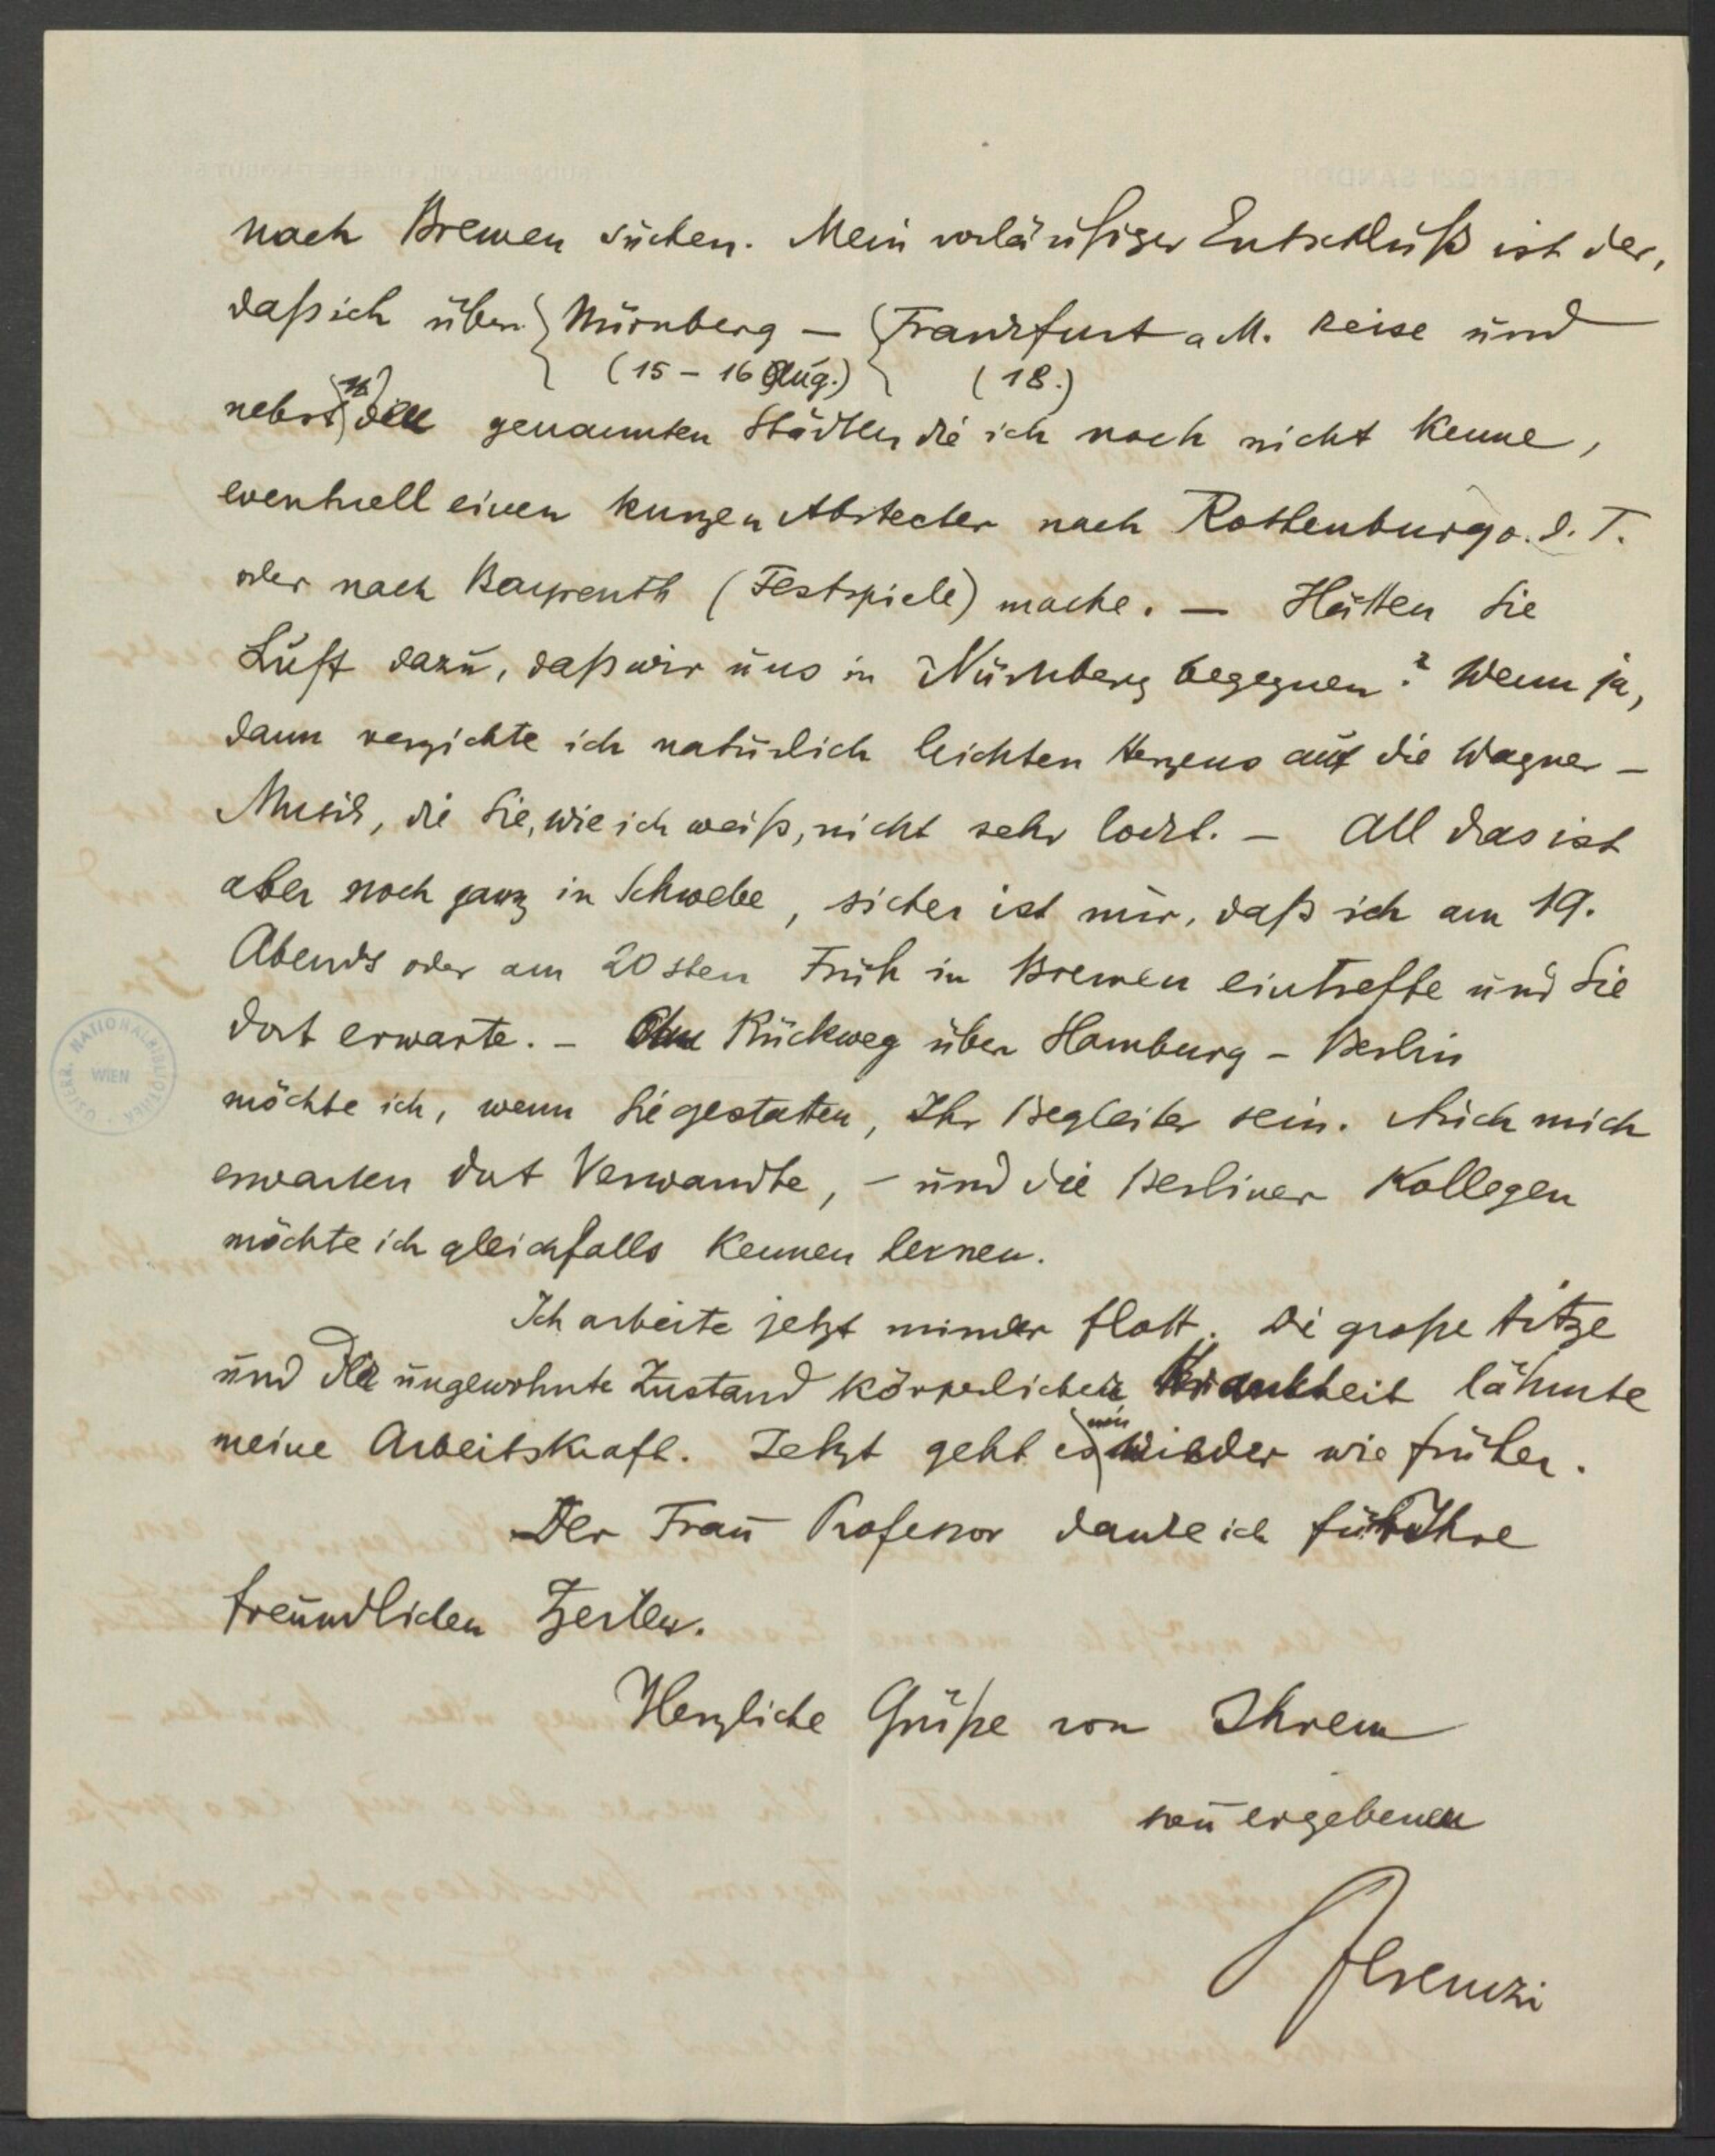 nach Bremen suchen. Mein vorläufiger Entschluß ist der,
daß ich über Nürnberg – Frankfurt a M. reise und
(15 – 16 Aug.) (18.)
nebst den genannten Städten die ich noch nicht kenne,
eventuell einen kurzen Abstecher nach Rothenburg o. d. T.
oder nach Bayreuth (Festspiele) mache. – Hätten Sie
Lust dazu, daß wir uns in Nürnberg begegnen? Wenn ja,
dann verzichte ich natürlich leichten Herzens auf die Wagner –
Musik, die Sie, wie ich weiß, nicht sehr lockt. – All das ist
aber noch ganz in Schwebe, sicher ist nur, daß ich am 19.
Abends oder am 20sten Früh in Bremen eintreffe und Sie
dort erwarte. – Rückweg über Hamburg – Berlin
möchte ich, wenn Sie gestatten, Ihr Begleiter sein. Auch mich
erwarten dort Verwandte, – und die Berliner Kollegen
möchte ich gleichfalls kennen lernen.
Ich arbeite jetzt minder flott. Die große Hitze
und der ungewohnte Zustand körperlicher Krankheit lähmte
meine Arbeitskraft. Jetzt geht es mir wieder wie früher.
Der Frau Professor danke ich für Ihre
freundlichen Zeilen.
Herzliche Grüße von Ihrem
ergebenen
Ferenczi
ÖSTERR. NATIONALBIBLIOTHEK
WIEN